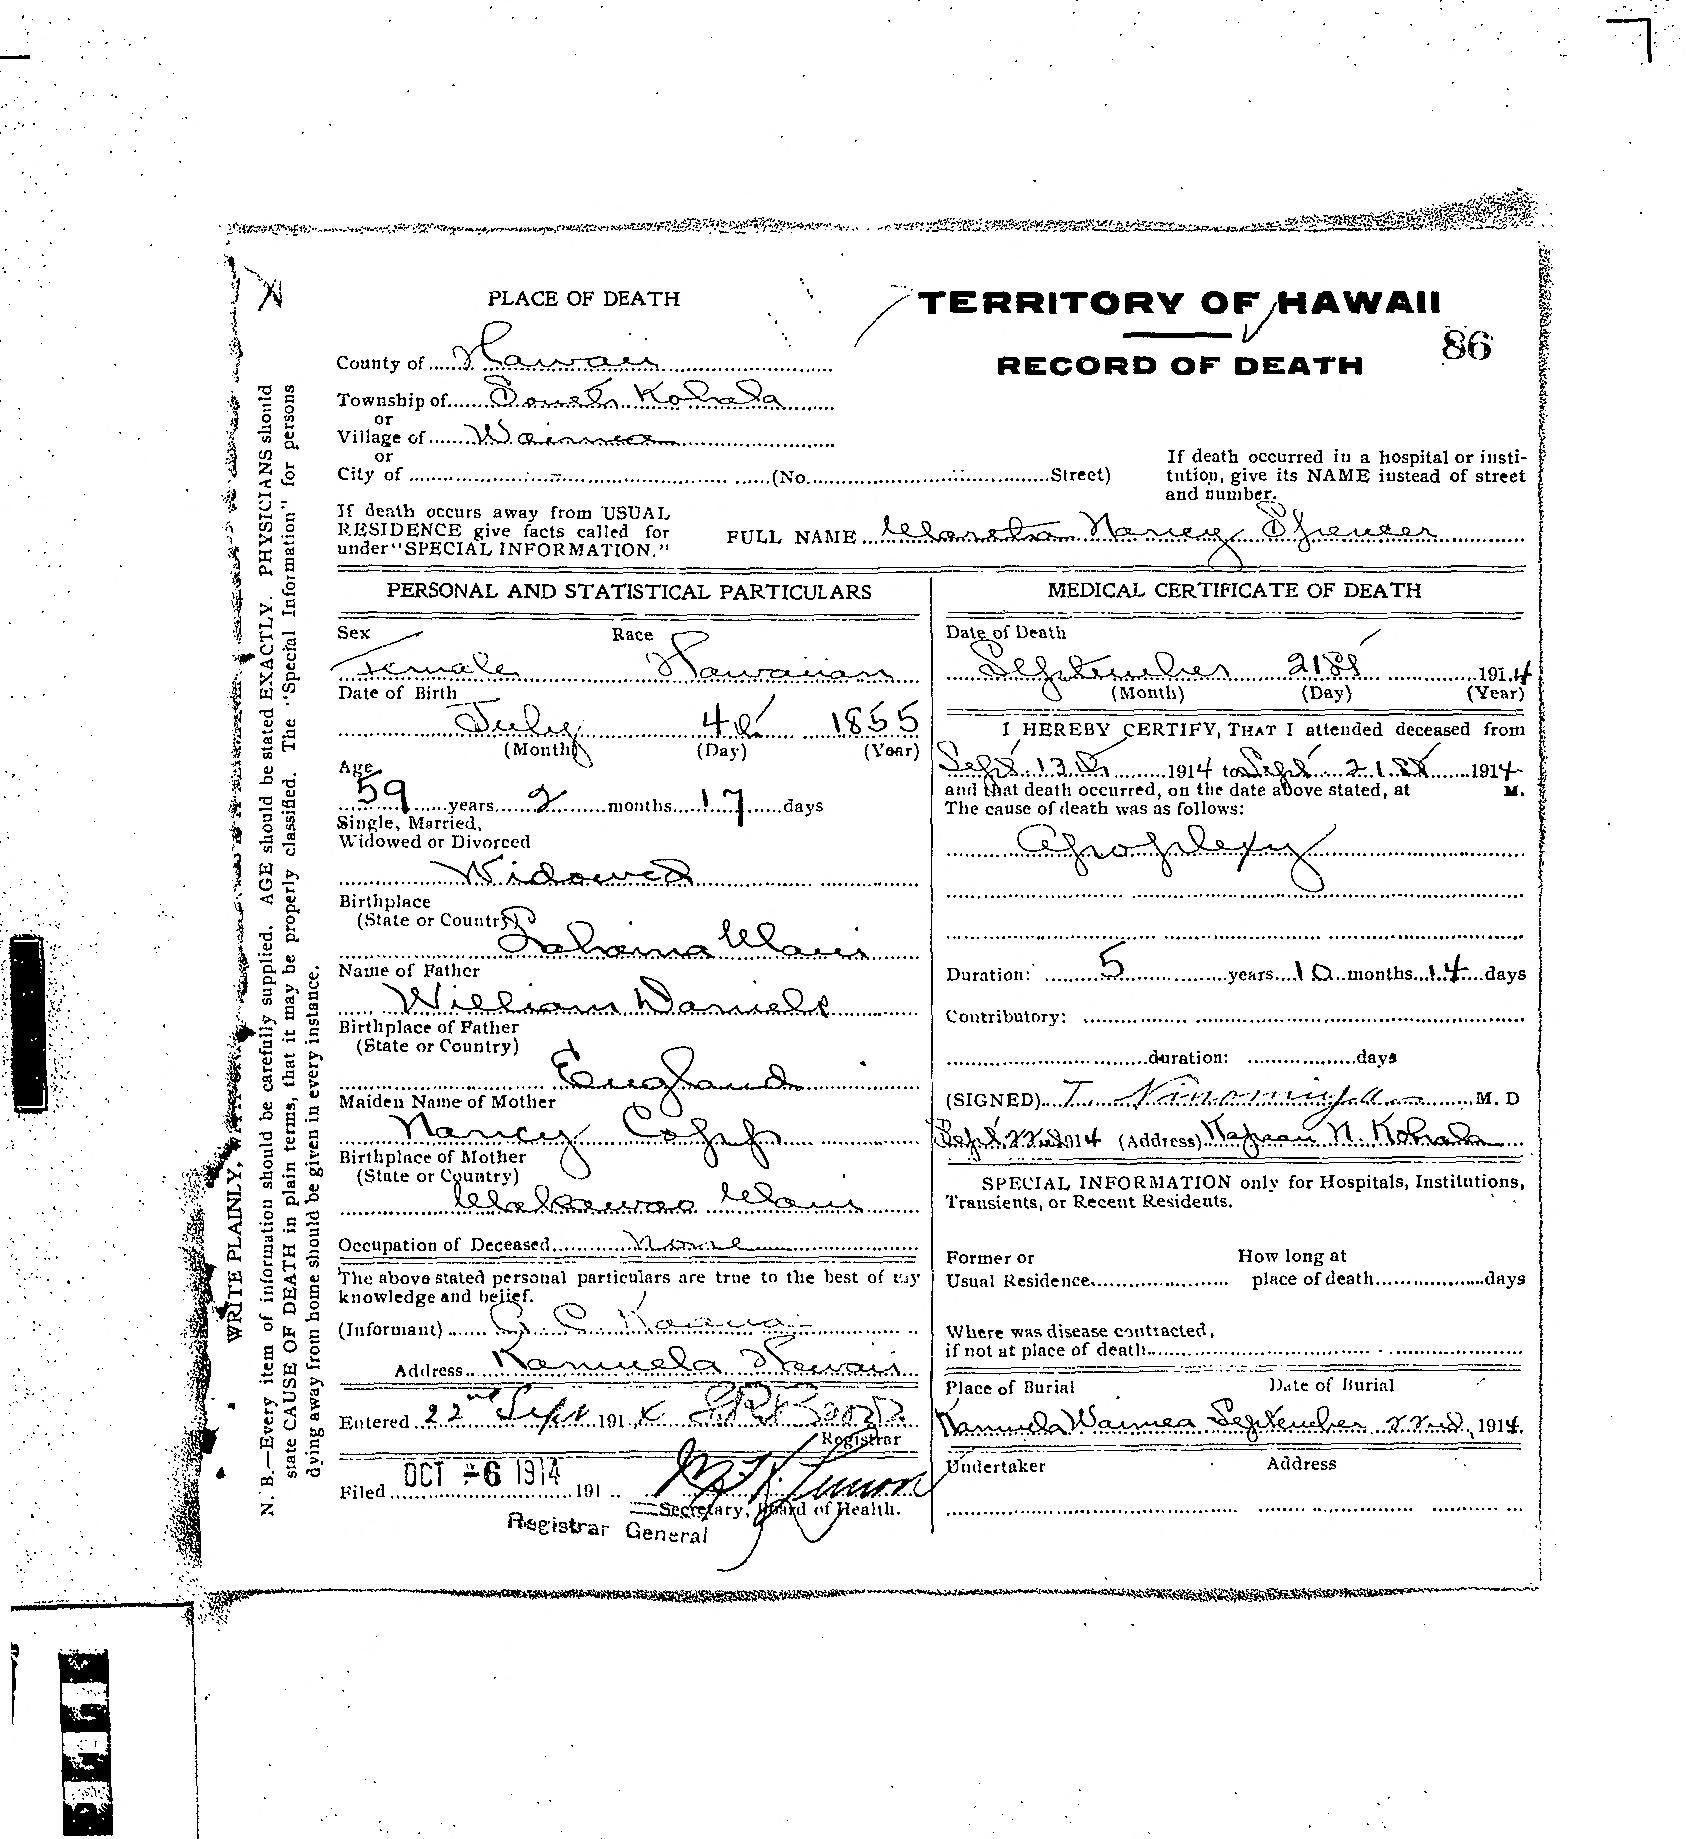 PLACE OF DEATH
TERRITORY OF HAWAII
86
RECORD OF DEATH
County of Hawaii
Township of South Kohala
or
Village of Waimea
or
City of (No. Street)
If death occurred in a hospital or insti-
tution, give its NAME instead of street
and number.
If death occurs away from USUAL
RESIDENCE give facts called for
under "SPECIAL INFORMATION."
FULL NAME Nancy Spencer
PERSONAL AND STATISTICAL PARTICULARS
Sex Race
Female Hawaiian
Date of Birth
July 4th 1855
(Month) (Day) (Year)
Age
59 years 2 months 17 days
Single, Married,
Widowed or Divorced
Widowed
Birthplace
(State or Country)
Lahaina Maui
Name of Father
William Daniels
Birthplace of Father
(State or Country)
England
Maiden Name of Mother
Nancy Copp
Birthplace of Mother
(State or Country)
Makawao Maui
Occupation of Deceased None
The above stated personal particulars are true to the best of my
knowledge and belief.
(Informant)
Address Kamuela Hawaii
Entered 22nd Sept 1914
Registrar
Filed OCT -6 1914 191
Secretary, Board of Health.
Registrar General
MEDICAL CERTIFICATE OF DEATH
Date of Death
September 21st 1914
(Month) (Day) (Year)
I HEREBY CERTIFY, THAT I attended deceased from
Sept 13th 1914 to Sept 21st 1914
and that death occurred, on the date above stated, at M.
The cause of death was as follows:
Apoplexy
Duration: 5 years 10 months 14 days
Contributory:
duration: days
(SIGNED) T. Ninomiya M. D
Sept 22nd 1914 (Address) Kapaau N. Kohala
SPECIAL INFORMATION only for Hospitals, Institutions,
Transients, or Recent Residents.
Former or How long at
Usual Residence place of death days
Where was disease contracted,
if not at place of death
Place of Burial Date of Burial
Kamuela Waimea September 22nd, 1914.
Undertaker Address
WRITE PLAINLY,
N. B.—Every item of information should be carefully supplied. AGE should be stated EXACTLY. PHYSICIANS should
state CAUSE OF DEATH in plain terms, that it may be properly classified. The "Special Information" for persons
dying away from home should be given in every instance.